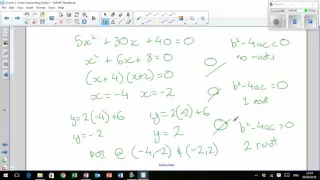 5x² + 30x + 40 = 0
x² + 6x + 8 = 0
(x + 4)(x + 2) = 0
x = -4 x = -2
y = 2(-4) + 6
y = -2
y = 2(-2) + 6
y = 2
POI @ (-4, -2) & (-2, 2)
b² - 4ac < 0
no roots
b² - 4ac = 0
1 root
b² - 4ac > 0
2 root